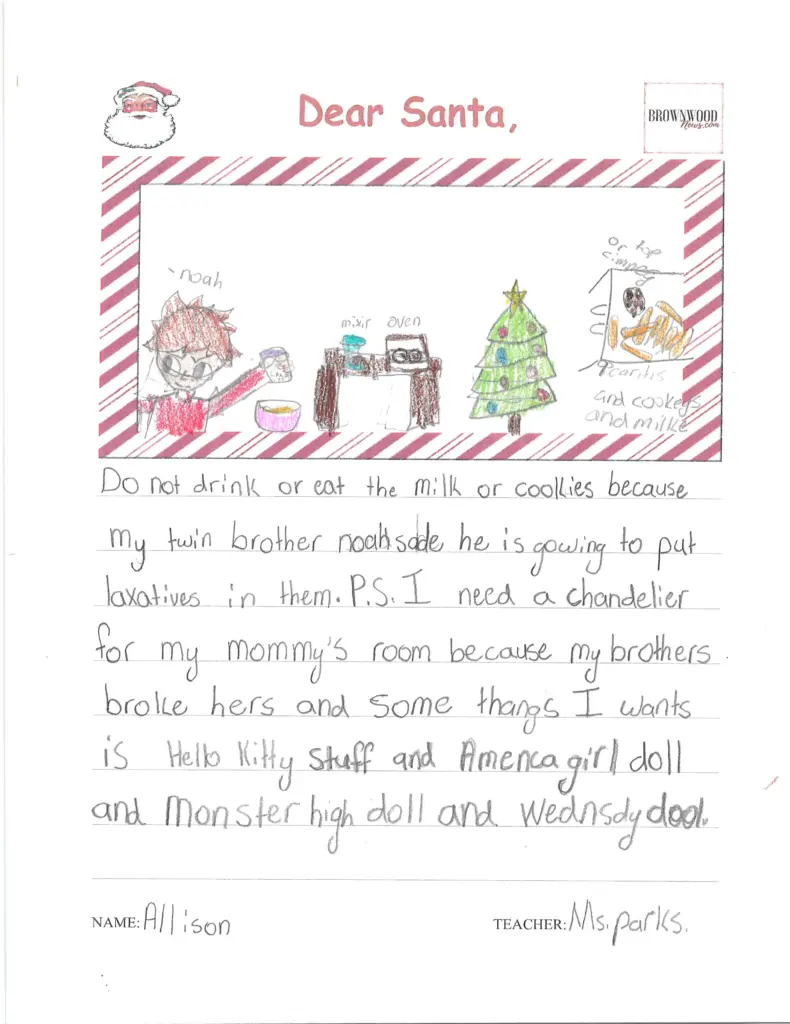 Dear Santa,
BROWNWOOD
News.com
noah
mixir oven
on top
9 carits
and cookeys
and milke
Do not drink or eat the milk or cookies because
my twin brother noah sade he is gowing to put
laxatives in them. P.S. I need a chandelier
for my mommy's room because my brothers
broke hers and some thangs I wants
is Hello Kitty stuff and America girl doll
and Monster high doll and Wednsdy dool.
NAME: Allison
TEACHER: Ms. parks.